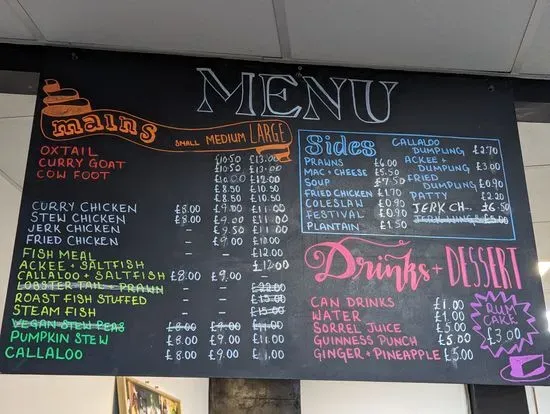 MENU
mains SMALL MEDIUM LARGE
OXTAIL £10.50 £13.00
CURRY GOAT £10.50 £13.00
COW FOOT £10.00 £12.00
£8.50 £10.50
£8.50 £10.50
CURRY CHICKEN £8.00 £9.00 £11.00
STEW CHICKEN £8.00 £9.00 £11.00
JERK CHICKEN - £9.50 £11.00
FRIED CHICKEN - £9.00 £10.00
FISH MEAL - - £12.00
ACKEE + SALTFISH £12.00
CALLALOO + SALTFISH £8.00 £9.00
LOBSTER TAIL + PRAWN - - £22.00
ROAST FISH STUFFED - - £15.00
STEAM FISH - - £15.00
VEGAN STEW PEAS £8.00 £9.00 £11.00
PUMPKIN STEW £8.00 £9.00 £11.00
CALLALOO £8.00 £9.00 £11.00
Sides
PRAWNS £6.00
MAC + CHEESE £5.50
SOUP £7.50
FRIED CHICKEN £1.70
COLESLAW £0.90
FESTIVAL £0.90
PLANTAIN £1.50
CALLALOO
DUMPLING £2.70
ACKEE +
DUMPLING £3.00
FRIED
DUMPLING £0.90
PATTY £2.20
JERK CH.. £6.50
JERK WINGS £5.00
Drinks + DESSERT
CAN DRINKS £1.00
WATER £1.00
SORREL JUICE £5.00
GUINNESS PUNCH £5.00
GINGER + PINEAPPLE £5.00
RUM
CAKE
£3.00